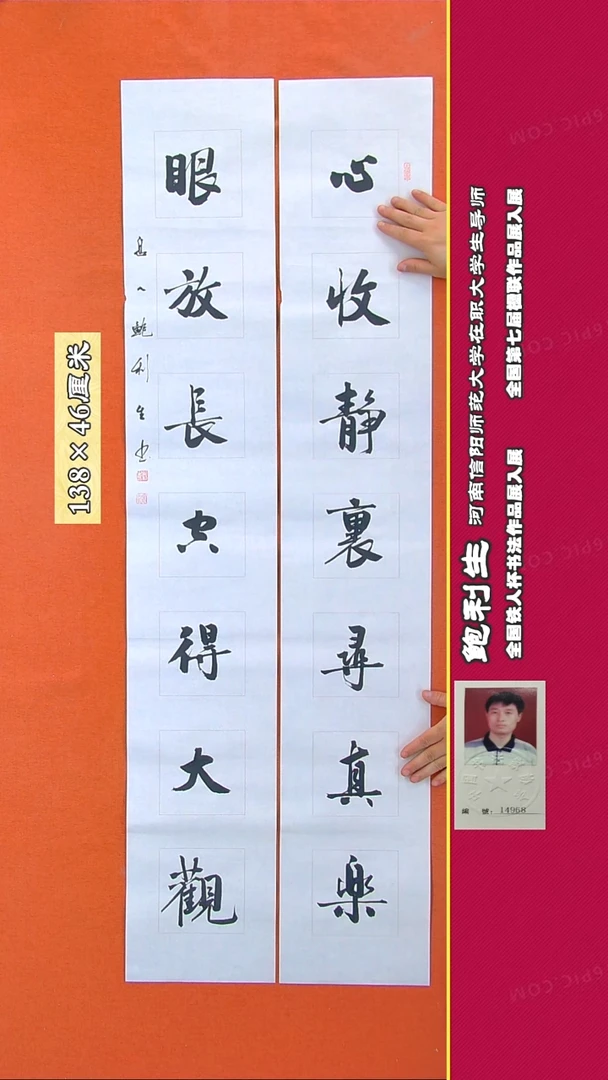 心收静裏尋真樂
眼放長空得大觀
鮑利生书
138×46厘米
鲍利生 河南信阳师范大学在职大学生导师
全国铁人杯书法作品展入展 全国第七届楹联作品展入展
编 号: 14968